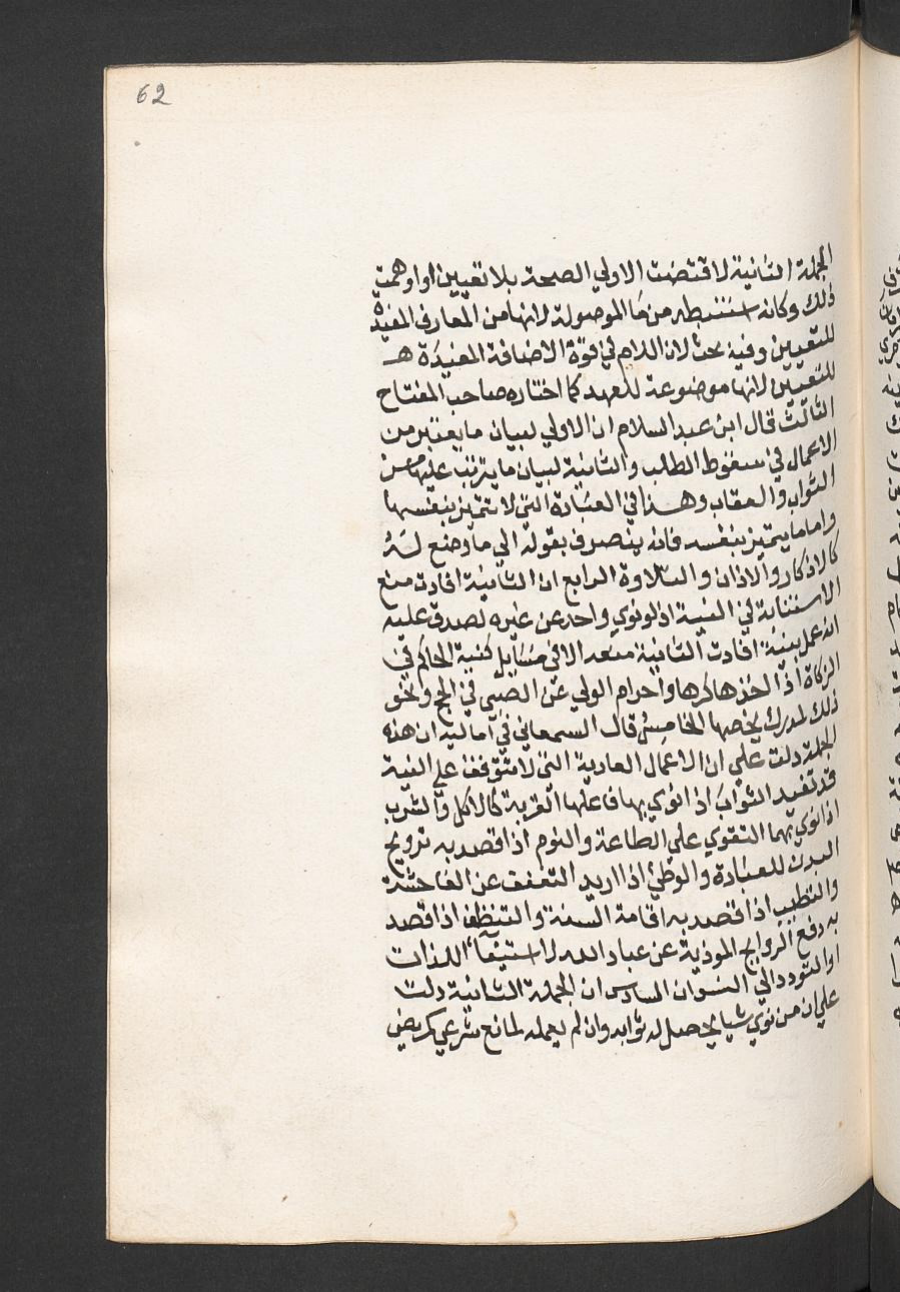 62
الجملة الثانية لاقتضت الاولي الصحة بلا تعيين او اوهمت
ذلك وكانه استنبطه من ما الموصولة لانها من المعارف المفيدة
للتعيين وفيه بحث لان اللام في قوة الاضافة المفيدة هـ
للتعيين لانها موضوعة للعهد كما اختاره صاحب المفتاح
الثالث قال ابن عبد السلام ان الاولي لبيان ما يعتبر من
الاعمال في سقوط الطلب والثانية لبيان ما يترتب عليها من
الثواب والعقاب وهذا في العبادة التي لا تتميز بنفسها
واما ما يتميز بنفسه فانه ينصرف بقوله الي ما وضع له
كالاذكار والاذان والتلاوة الرابع ان الثانية افادت منع
الاستنابة في النية اذ لو نوي واحد عن غيره لصدق عليه
انه عمل بنية افادت الثانية منعه الا في مسايل كنية الحاكم في
الزكاة اذا اخذها كرها واحرام الولي عن الصبي في الحج ونحو
ذلك لمدرك يخصها الخامس قال السمعاني في اماليه ان هذه
الجملة دلت علي ان الاعمال العادية التي لا تتوقف علي النية
قد تفيد الثواب اذا نوي بها فاعلها القربة كالاكل والشرب
اذا نوي بهما التقوي علي الطاعة والنوم اذا قصد به ترويح
البدن للعبادة والوطئ اذا اريد التعفف عن الفاحشة
والتطيب اذا قصد به اقامة السنة والتنظف اذا قصد
به دفع الروايح الموذية عن عباد الله لا استيفآء اللذات
او التودد الي النسوان السادس ان الجملة الثانية دلت
علي ان من نوي شيا يحصل له ثوابه وان لم يعمله لمانع شرعي كمريض